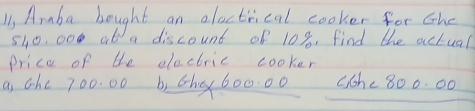 11, Araba bought an electrical cooker for Ghc
540.00 at a discount of 10%. find the actual
Price of the electric cooker
a, Ghc 700.00 b, Ghc 600.00 c, Ghc 800.00